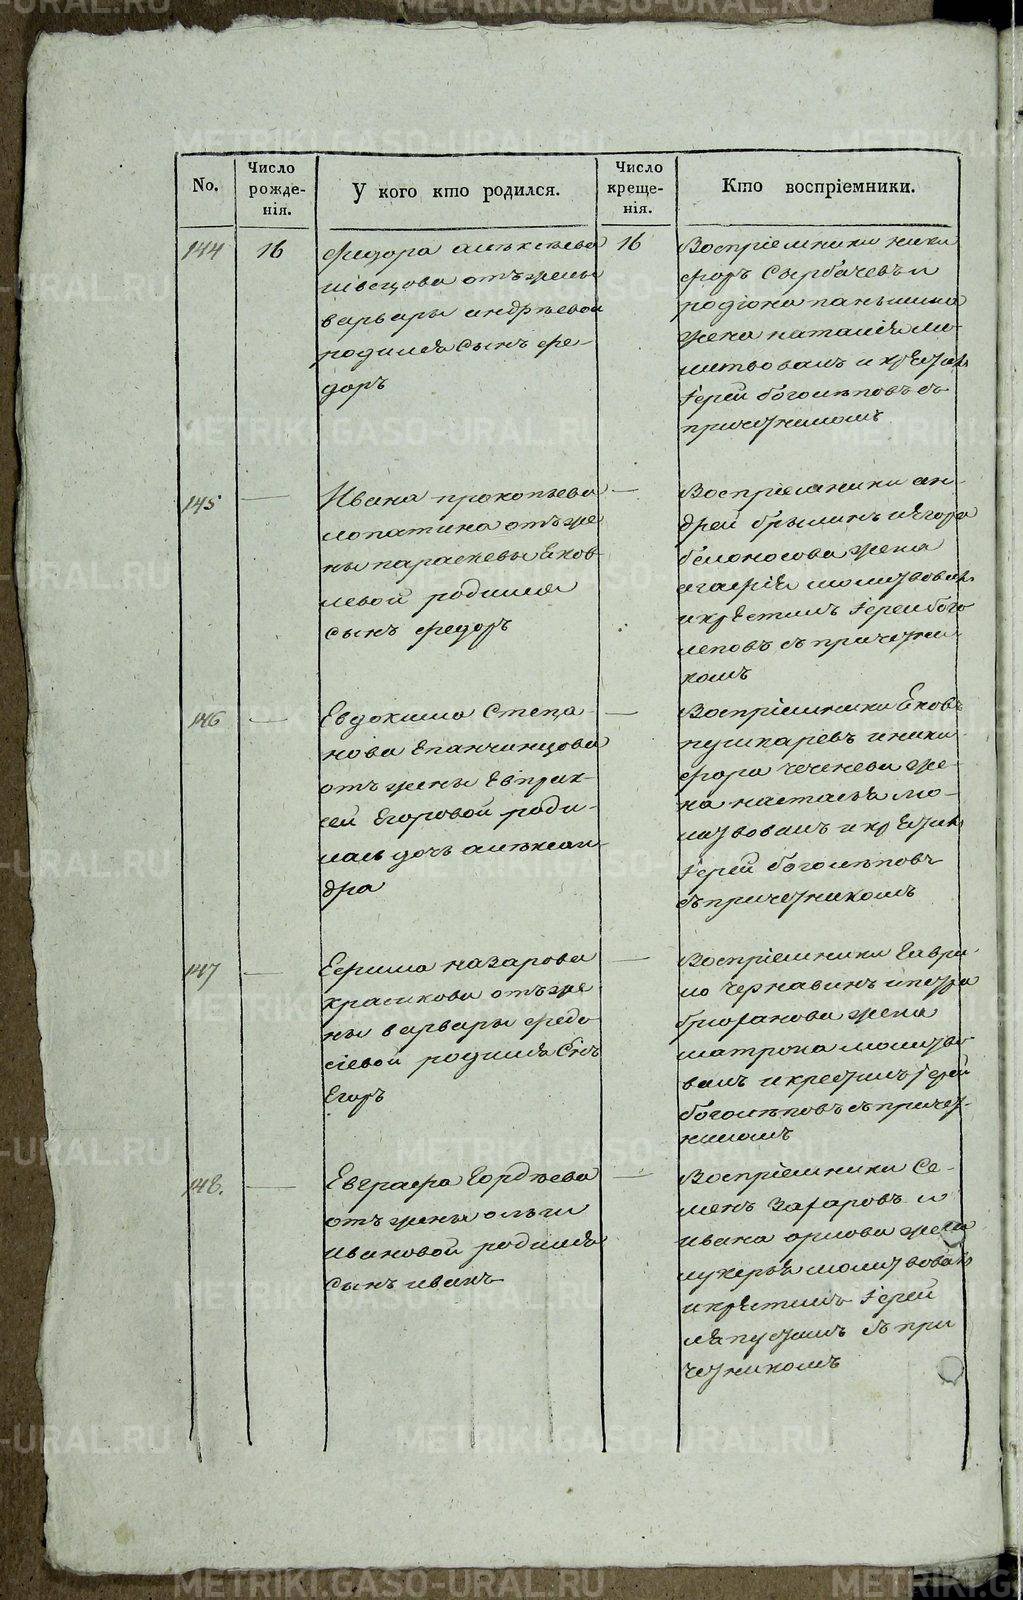 No.
Число рожде-нія.
У кого кто родился.
Число креще-нія.
Кто воспріемники.
144
16
Федора алексѣева
швецова отъ жены
варвары андрѣевой
родился сынъ фе-
доръ
16
Воспріемники ники
форъ Сырбачевъ и
родіона паньшина
жена наталія мо-
литвовалъ и крѣстилъ
Іерей боголѣповъ съ
причетникомъ
145
Ивана прокопьева
лопатина отъ же
ны параскевы Еков
левой родился
сынъ федоръ
Воспріемники ан-
дрей брылинъ и егора
белоносова жена
агафія молитвовалъ
и крѣстилъ Іерей бого
леповъ съ причетни
комъ
146
Евдокима Степа
нова Епанчинцова
отъ жены Евпрак-
сеи Егоровой роди-
лась дочь алѣксан-
дра
Воспріемники Ековъ
пушкаревъ и ники
фора чеченева же-
на настасья мо-
литвовалъ и крѣстилъ
Іерей боголѣповъ
съ причетникомъ
147
Ефима назарова
красикова отъ же
ны варвары федо
сіевой родился Снъ
Егоръ
Воспріемники Гаври
ло чернавинъ и петра
брюханова жена
матрона молитво
валъ и крестилъ Іерей
боголѣповъ съ причет-
никомъ
148.
Евграфа Гордѣева
отъ жены ольги
ивановой родился
сынъ иванъ
Воспріемники Се-
менъ Захаровъ и
ивана орлова жена
лукерья молитвовалъ
и крѣстилъ Іерей
съ при
четникомъ
METRIKI.GASO-URAL.RU